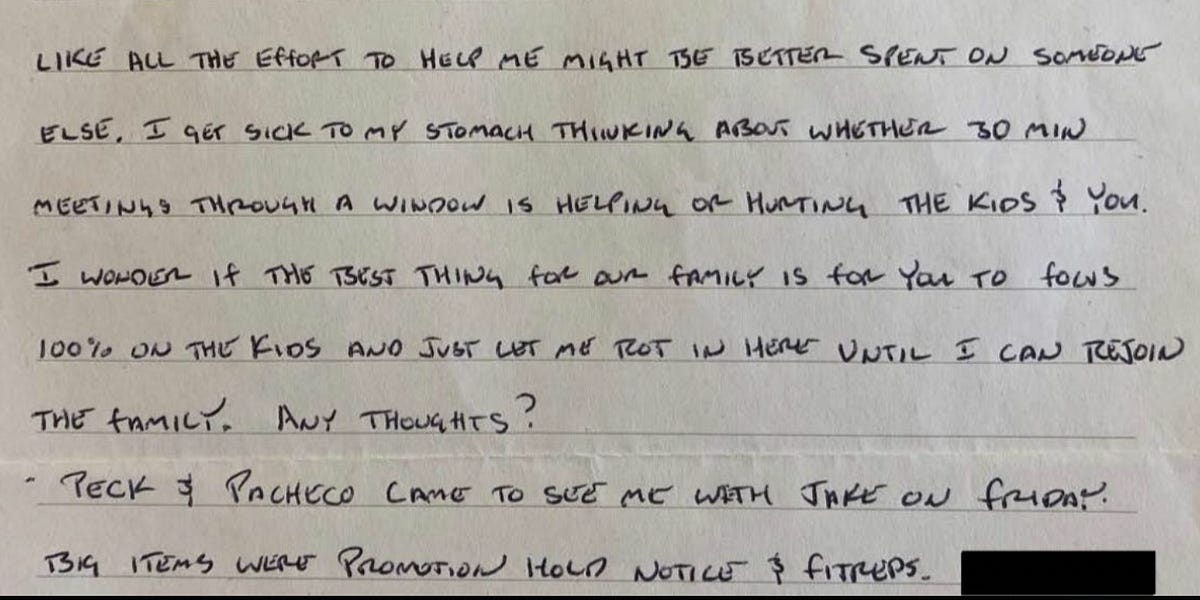 LIKE ALL THE EFFORT TO HELP ME MIGHT BE BETTER SPENT ON SOMEONE
ELSE. I GET SICK TO MY STOMACH THINKING ABOUT WHETHER 30 MIN
MEETINGS THROUGH A WINDOW IS HELPING OR HURTING THE KIDS & YOU.
I WONDER IF THE BEST THING FOR OUR FAMILY IS FOR YOU TO FOCUS
100% ON THE KIDS AND JUST LET ME ROT IN HERE UNTIL I CAN REJOIN
THE FAMILY. ANY THOUGHTS?
- PECK & PACHECO CAME TO SEE ME WITH JAKE ON FRIDAY.
BIG ITEMS WERE PROMOTION HOLD NOTICE & FITREPS.